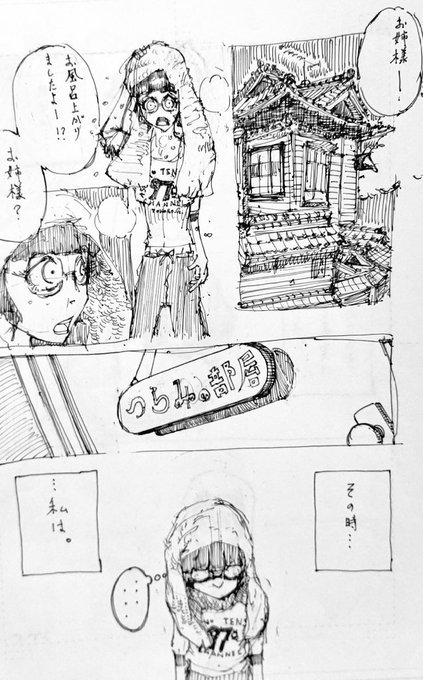 お姉様ー！
お風呂上がり
ましたよー!?
お姉様？
TEN
77
HANNE
つらみの部屋
その時…
…私は。
……
TENS
77
HANNEL